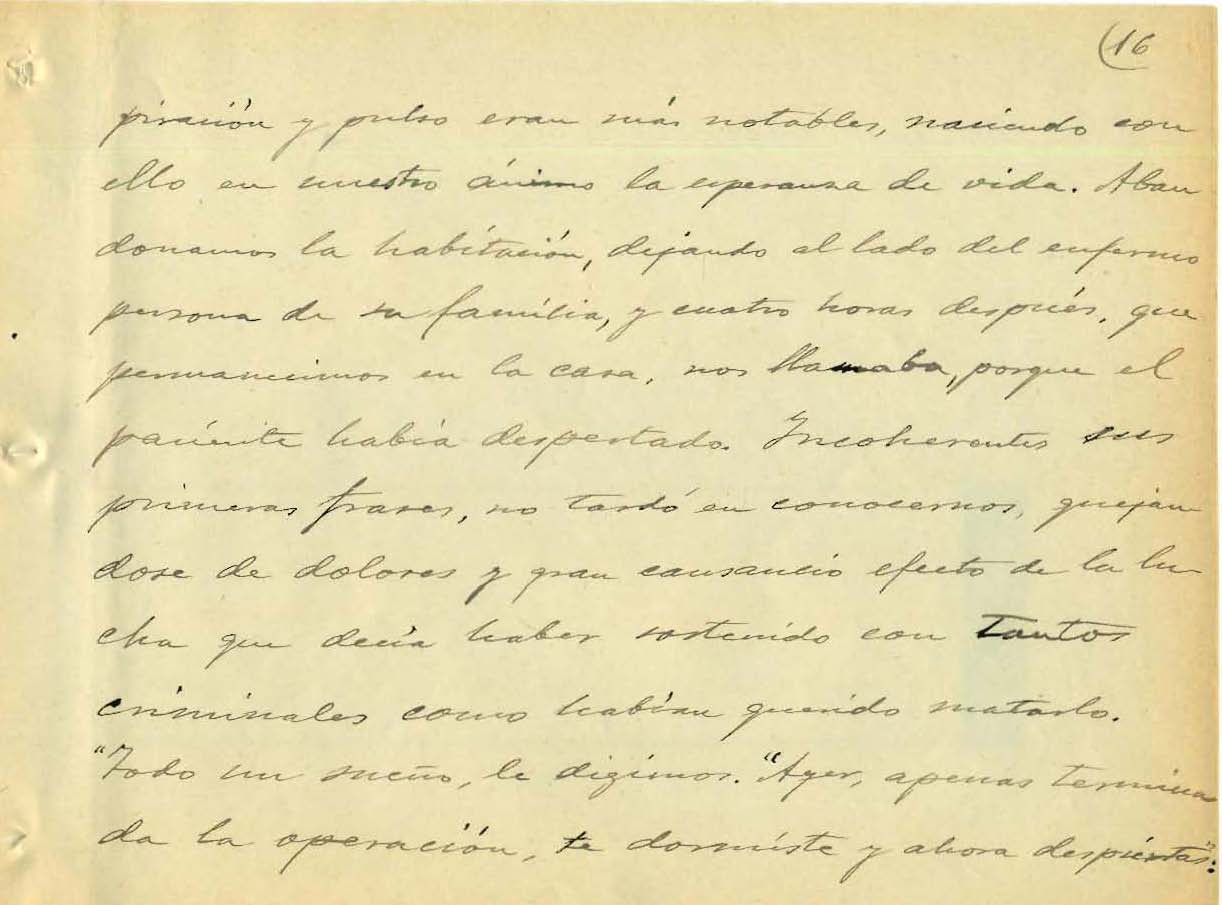 16
piración y pulso eran más notables, naciendo con
ello en nuestro ánimo la esperanza de vida. Aban
donamos la habitación, dejando al lado del enfermo
persona de su família, y cuatro horas después, que
permanecimos en la casa, nos llamaba, porque el
paciente había despertado. Incoherentes sus
primeras frases, no tardó en conocernos, quejan
dose de dolores y gran cansancio efecto de la lu-
cha que decía haber sostenido con tantos
criminales como habían querido matarlo.
"Todo un sueño, le digimos. "Ayer, apenas termina
da la operación, te dormiste y ahora despiertas":